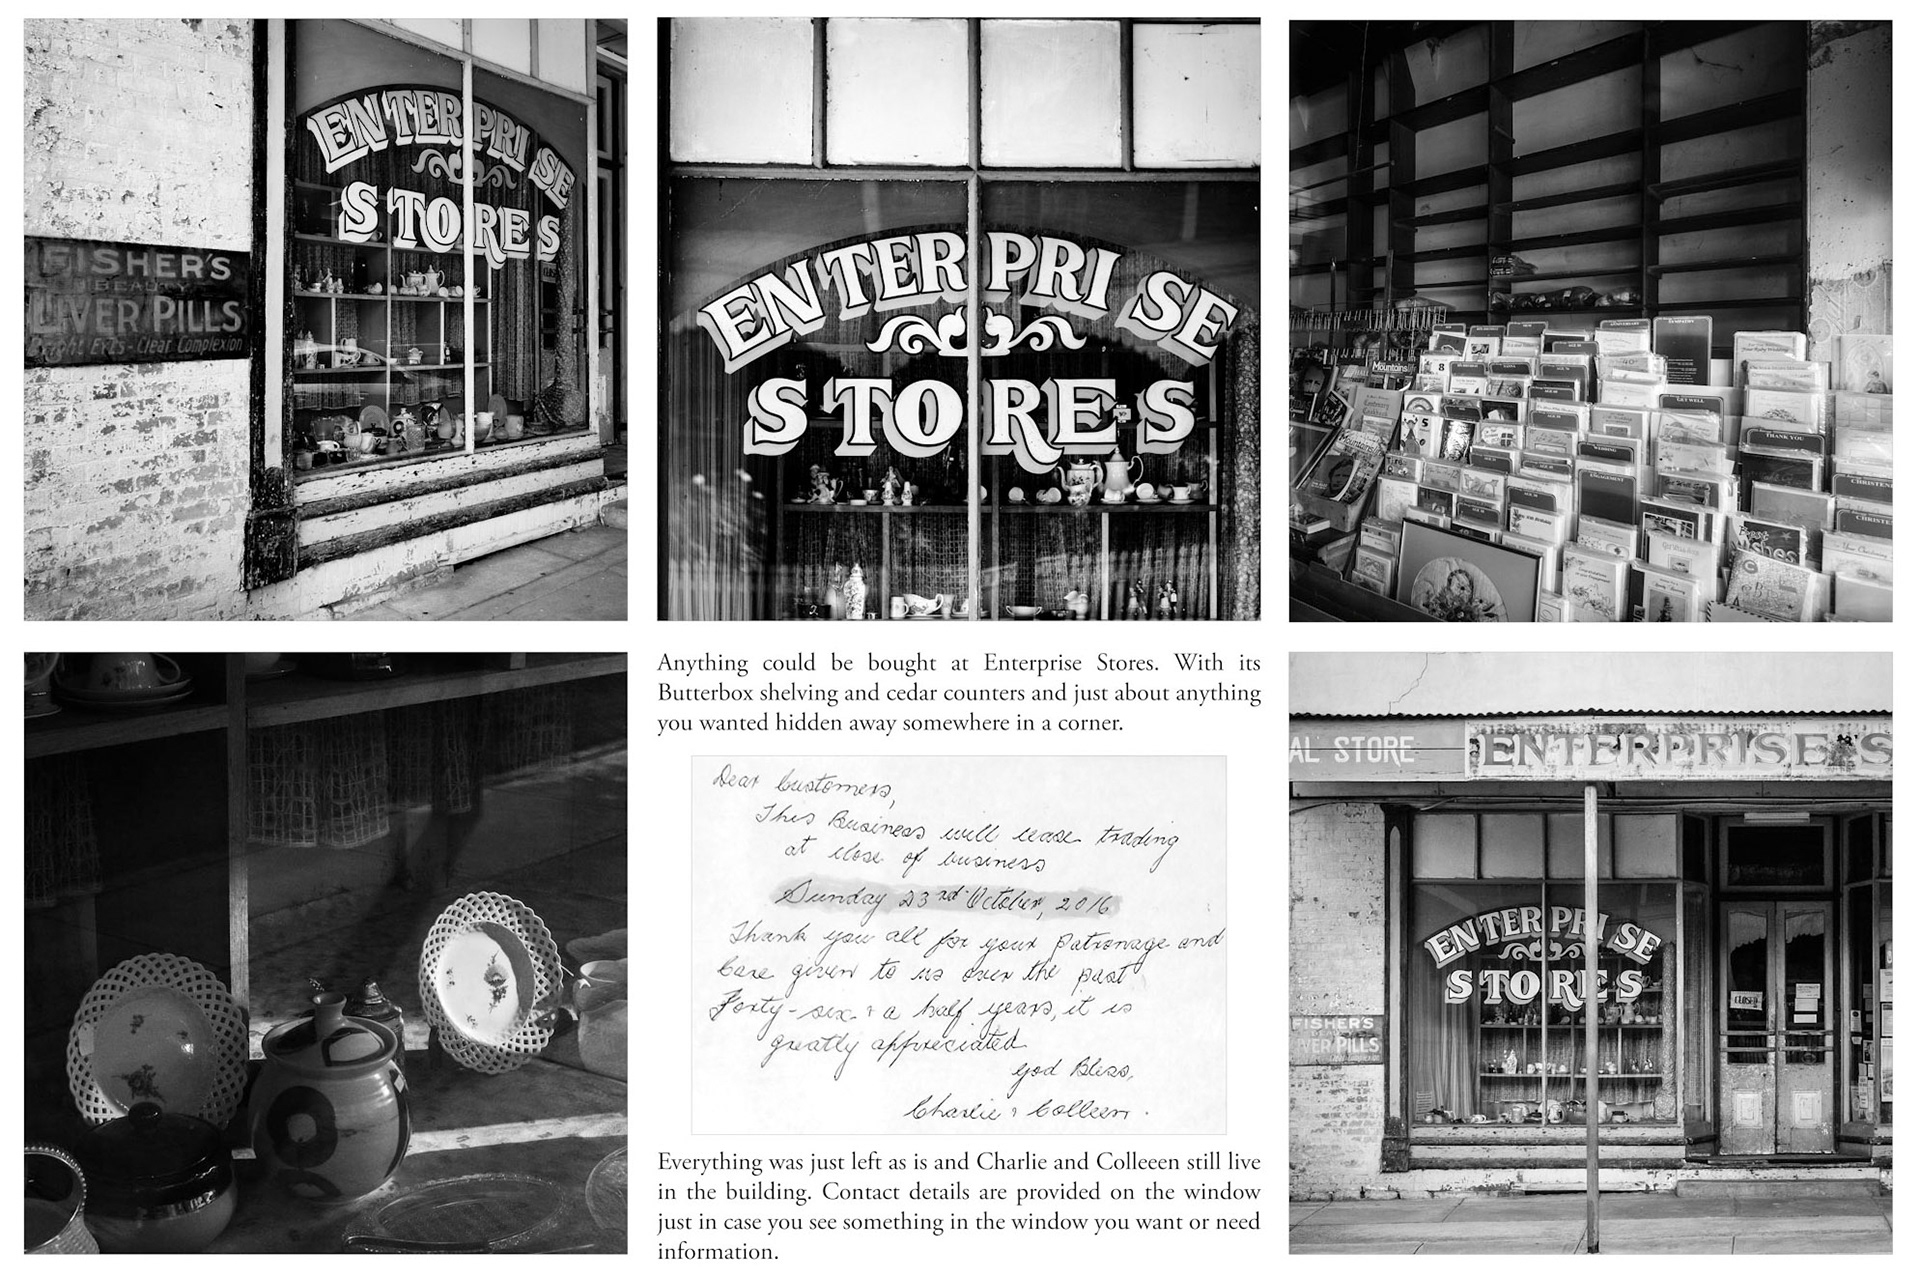 ENTERPRISE
STORES
FISHER'S
BEAUTY
LIVER PILLS
Bright Eyes - Clear Complexion
ENTERPRISE
STORES
Mountains
GET WELL
THANK YOU
WEDDING
ENGAGEMENT
Best
Wishes
Anything could be bought at Enterprise Stores. With its
Butterbox shelving and cedar counters and just about anything
you wanted hidden away somewhere in a corner.
Dear Customers,
This Business will cease trading
at close of business
Sunday 23rd October, 2016
Thank you all for your Patronage and
Care given to us over the past
Forty-six & a half years, it is
greatly appreciated
God Bless,
Charlie & Colleen.
Everything was just left as is and Charlie and Colleeen still live
in the building. Contact details are provided on the window
just in case you see something in the window you want or need
information.
AL STORE
ENTERPRISE S
ENTERPRISE
STORES
CLOSED
FISHER'S
IVER PILLS